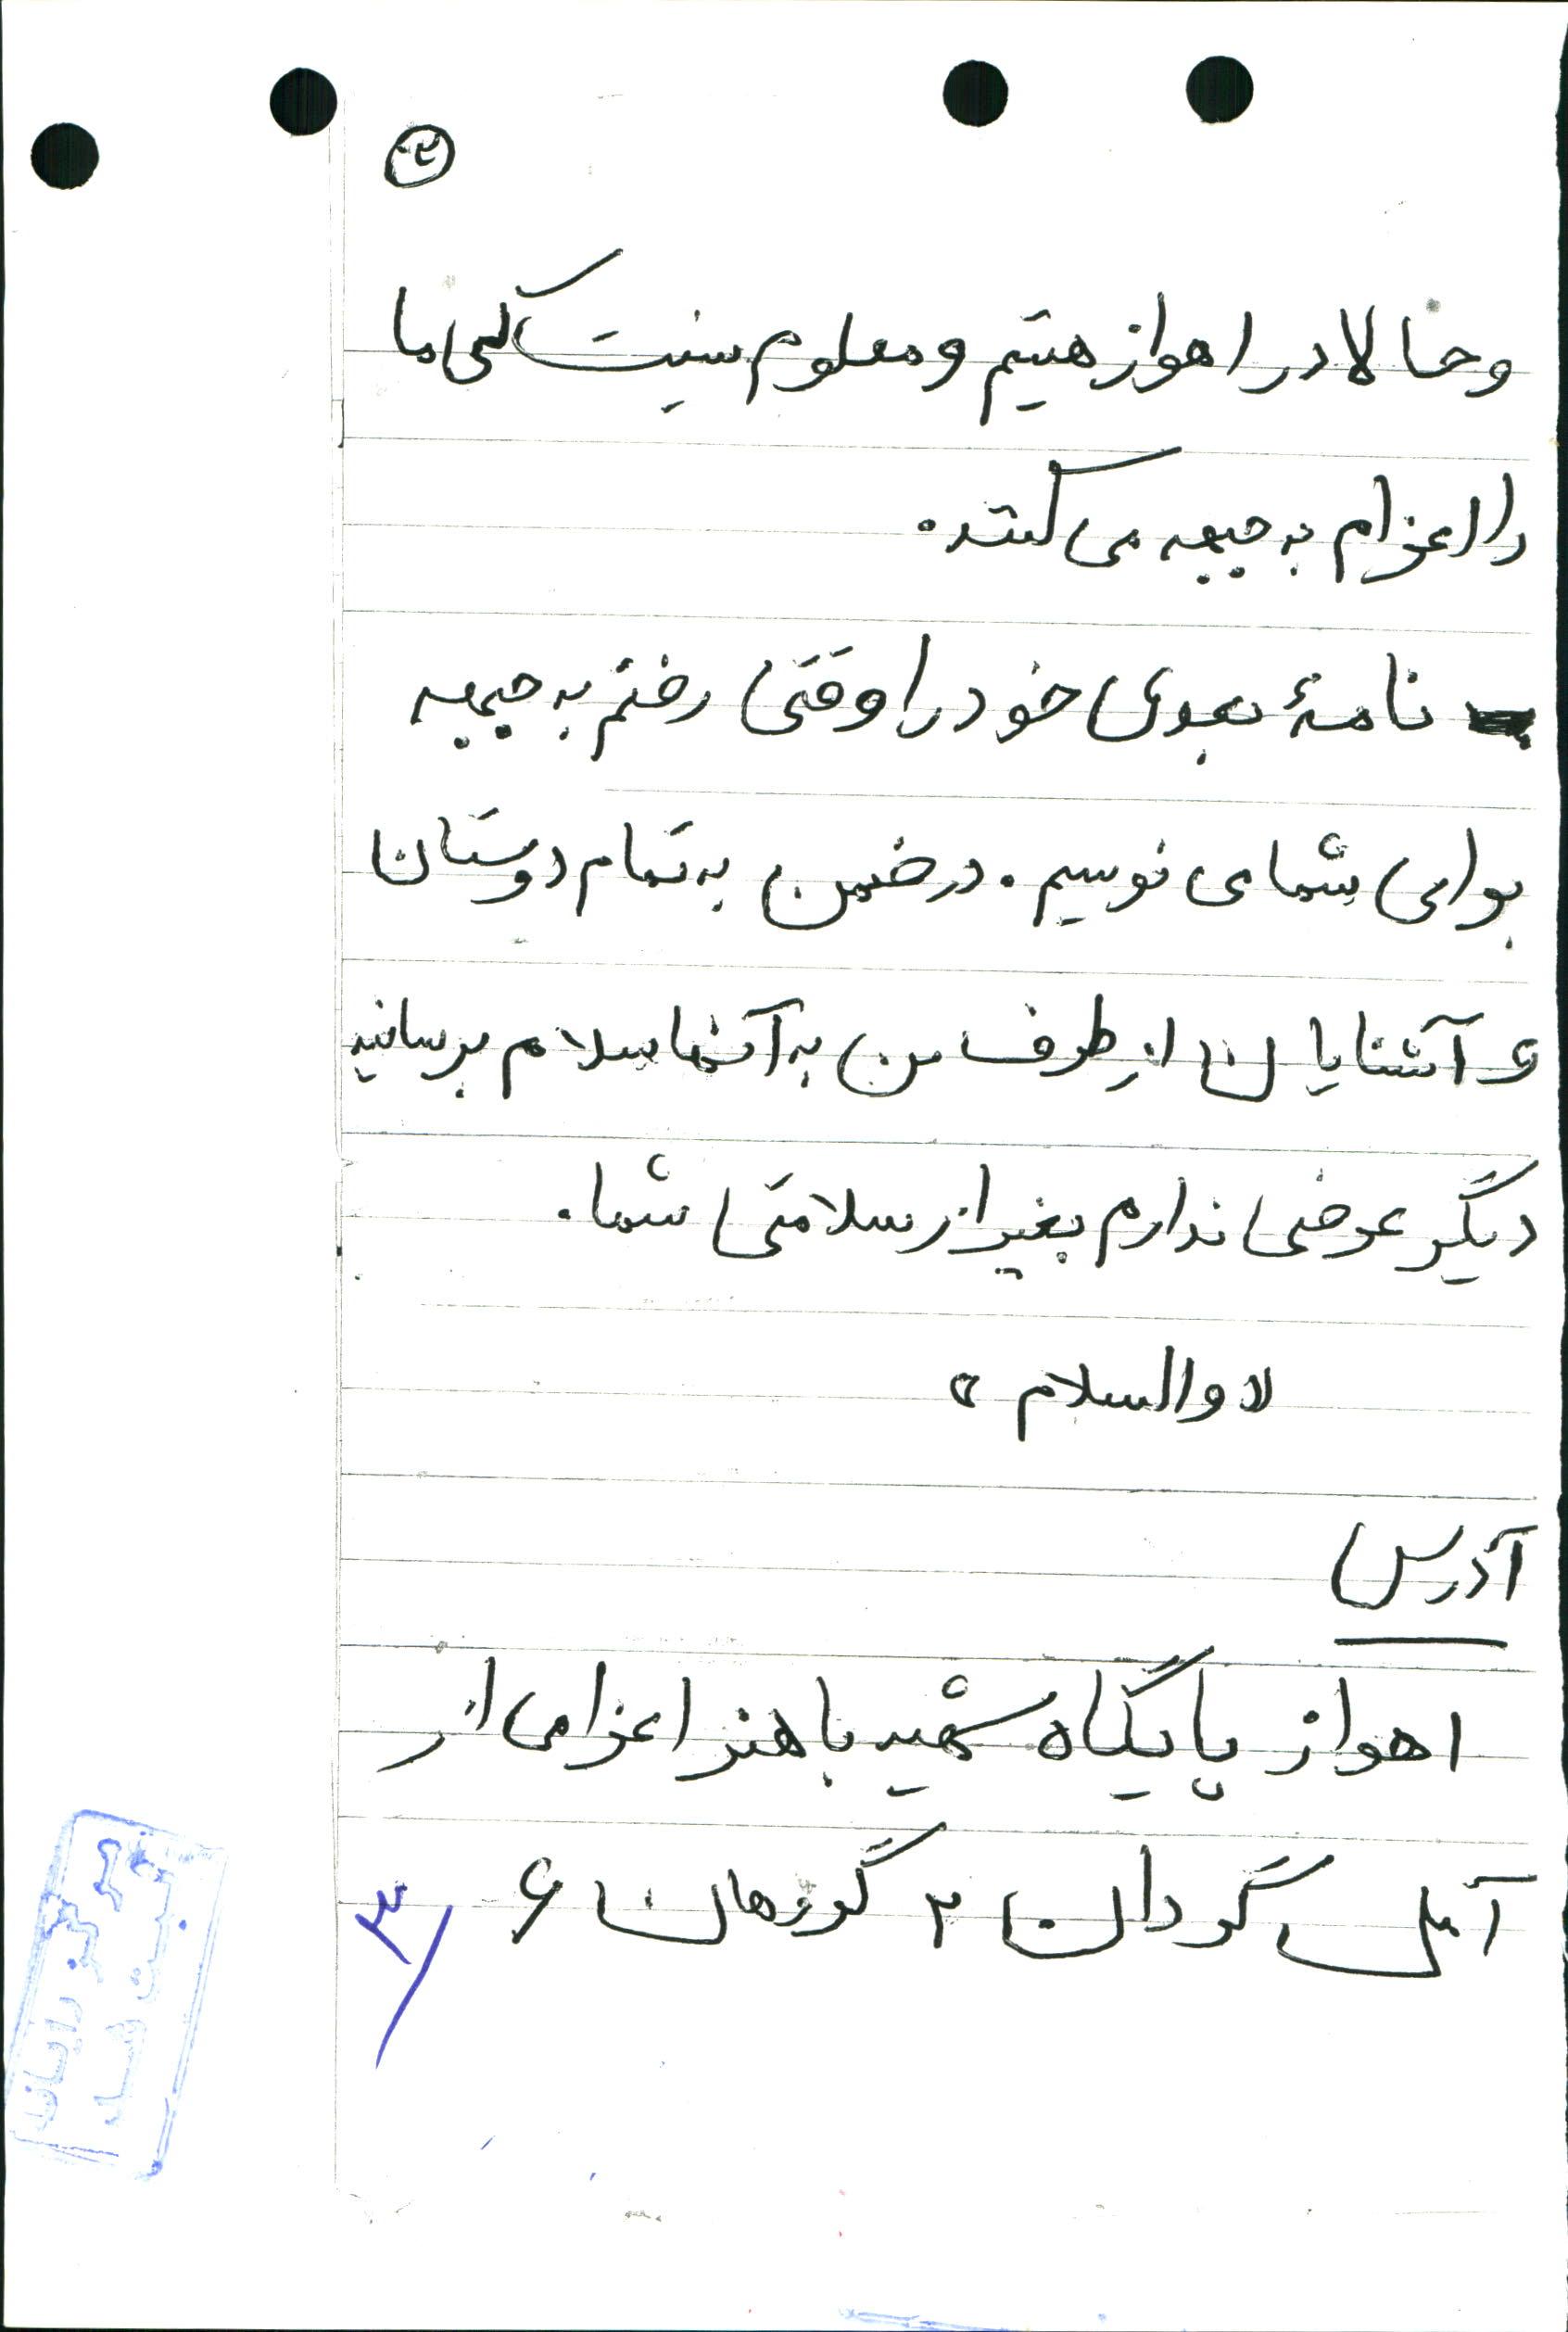 ۲
و حالا در اهواز هستیم و معلوم نیست کی ما
را اعزام به جبهه می کنند.
نامهٔ بعدی خود را وقتی رفتم به جبهه
برای شما می نویسم. در ضمن به تمام دوستان
و آشنایان از طرف من به آنها سلام برسانید
دیگر عرضی ندارم بغیر از سلامتی شما.
« والسلام »
آدرس
اهواز پایگاه شهید باهنر اعزامی از
آمل گردان ۲ گروهان ۶
۳/
ثبت شد